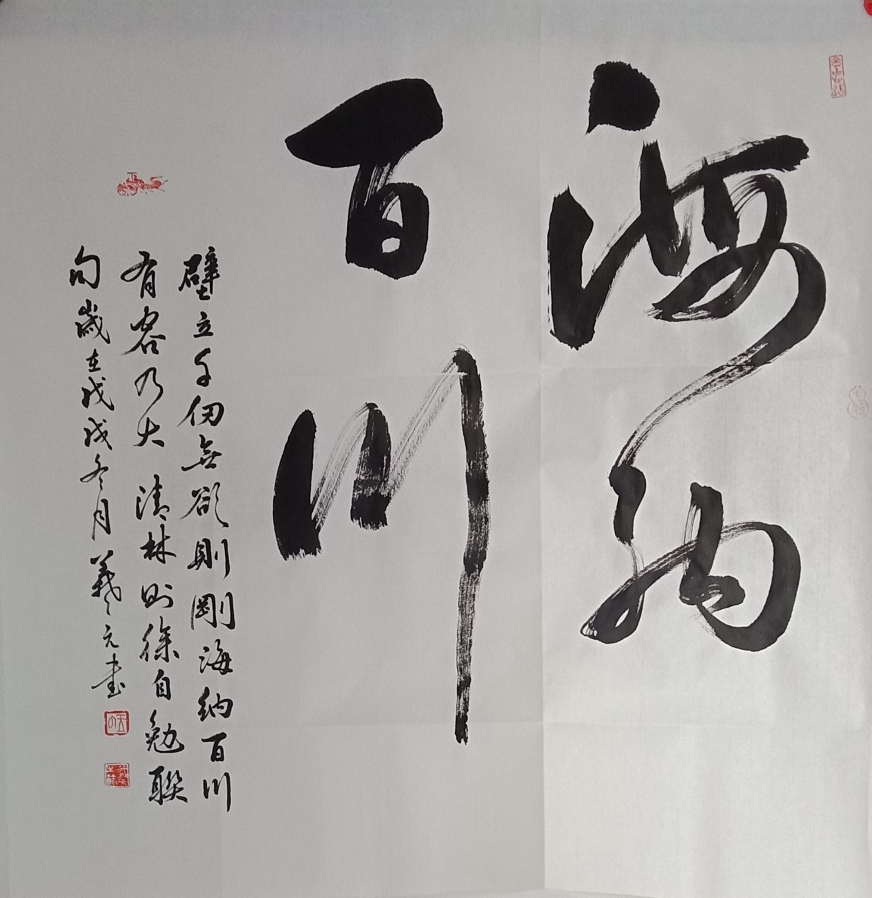 海納
百川
壁立千仞無欲則剛海納百川
有容乃大清林則徐自勉聯
句歲在戊戌冬月義元書